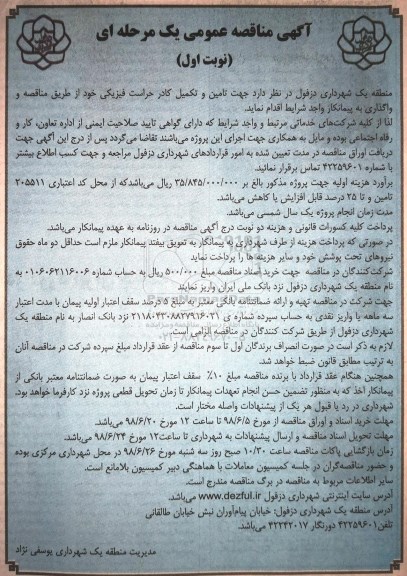 آگهی مناقصه عمومی یک مرحله ای
(نوبت اول)
منطقه یک شهرداری دزفول در نظر دارد جهت تامین و تکمیل کادر حراست فیزیکی خود از طریق مناقصه و
واگذاری به پیمانکار واجد شرایط اقدام نماید.
لذا از کلیه شرکت‌های خدماتی مرتبط و واجد شرایط که دارای گواهی تایید صلاحیت ایمنی از اداره تعاون، کار و
رفاه اجتماعی بوده و مایل به همکاری جهت اجرای این پروژه می‌باشند تقاضا می‌گردد پس از درج این آگهی جهت
دریافت اوراق مناقصه در مدت تعیین شده به امور قراردادهای شهرداری دزفول مراجعه و جهت کسب اطلاع بیشتر
با شماره ۴۲۲۵۹۶۰۱ تماس برقرار نمائید.
برآورد هزینه اولیه جهت پروژه مذکور بالغ بر ۳۵/۸۴۵/۰۰۰/۰۰۰ ریال می‌باشدکه از محل کد اعتباری ۲۰۵۵۱۱
تامین و تا ۲۵ درصد قابل افزایش یا کاهش می‌باشد.
مدت زمان انجام پروژه یک سال شمسی می‌باشد.
پرداخت کلیه کسورات قانونی و هزینه دو نوبت درج آگهی مناقصه در روزنامه به عهده پیمانکار می‌باشد.
در صورتی که پرداخت هزینه از طرف شهرداری به پیمانکار به تعویق بیفتد پیمانکار ملزم است حداقل دو ماه حقوق
نیروهای تحت پوشش خود و سایر هزینه ها را پرداخت نماید
شرکت‌کنندگان در مناقصه جهت خرید اسناد مناقصه مبلغ ۵۰۰/۰۰۰ ریال به حساب شماره ۰۱۰۶۰۶۲۱۱۶۰۰۶ به
نام منطقه یک شهرداری دزفول نزد بانک ملی ایران واریز نمایند
جهت شرکت در مناقصه تهیه و ارائه ضمانتنامه بانکی معتبر به مبلغ ۵ درصد سقف اعتبار اولیه پیمان با مدت اعتبار
سه ماهه یا واریز نقدی به حساب سپرده شماره ی ۲۱۱۸۰۴۳۰۸۸۲۷۹۱۶۰۲۱ نزد بانک انصار به نام منطقه یک
شهرداری دزفول از طریق شرکت کنندگان در مناقصه الزامی است.
لازم به ذکر است در صورت انصراف برندگان اول تا سوم مناقصه از عقد قرارداد مبلغ سپرده شرکت در مناقصه آنان
به ترتیب مطابق قانون ضبط خواهد شد.
همچنین هنگام عقد قرارداد با برنده مناقصه مبلغ ۱۰٪ سقف اعتبار پیمان به صورت ضمانتنامه معتبر بانکی از
پیمانکار اخذ که به منظور تضمین حسن انجام تعهدات پیمانکار تا زمان تحویل قطعی پروژه نزد کارفرما خواهد بود.
شهرداری در رد یا قبول هر یک از پیشنهادات واصله مختار است.
مهلت خرید اسناد و اوراق مناقصه از مورخ ۹۸/۶/۵ تا ساعت ۱۲ مورخ ۹۸/۶/۲۰ می‌باشد.
مهلت تحویل اسناد مناقصه و ارسال پیشنهادات به شهرداری تا ساعت۱۲ مورخ ۹۸/۶/۲۴ می‌باشد.
زمان بازگشایی پاکات مناقصه ساعت ۱۰/۳۰ صبح روز سه شنبه مورخ ۹۸/۶/۲۶ در محل شهرداری مرکزی بوده
و حضور مناقصه‌گران در جلسه کمیسیون معاملات با هماهنگی دبیر کمیسیون بلامانع است.
سایر اطلاعات مربوط به مناقصه در برگ مناقصه مندرج است.
آدرس سایت اینترنتی شهرداری دزفول www.dezful.ir می‌باشد.
آدرس منطقه یک شهرداری دزفول: خیابان پیام‌آوران نبش خیابان طالقانی
تلفن۴۲۲۵۹۶۰۱ دورنگار ۴۲۲۴۲۰۱۷ می‌باشد.
مدیریت منطقه یک شهرداری یوسفی نژاد